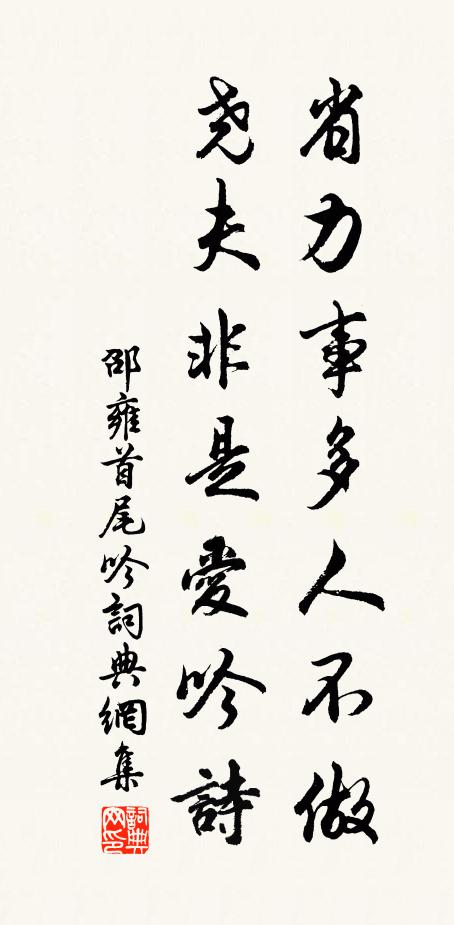 省力事多人不做
尧夫非是愛吟詩
邵雍首尾吟詞典網集
詞典网印